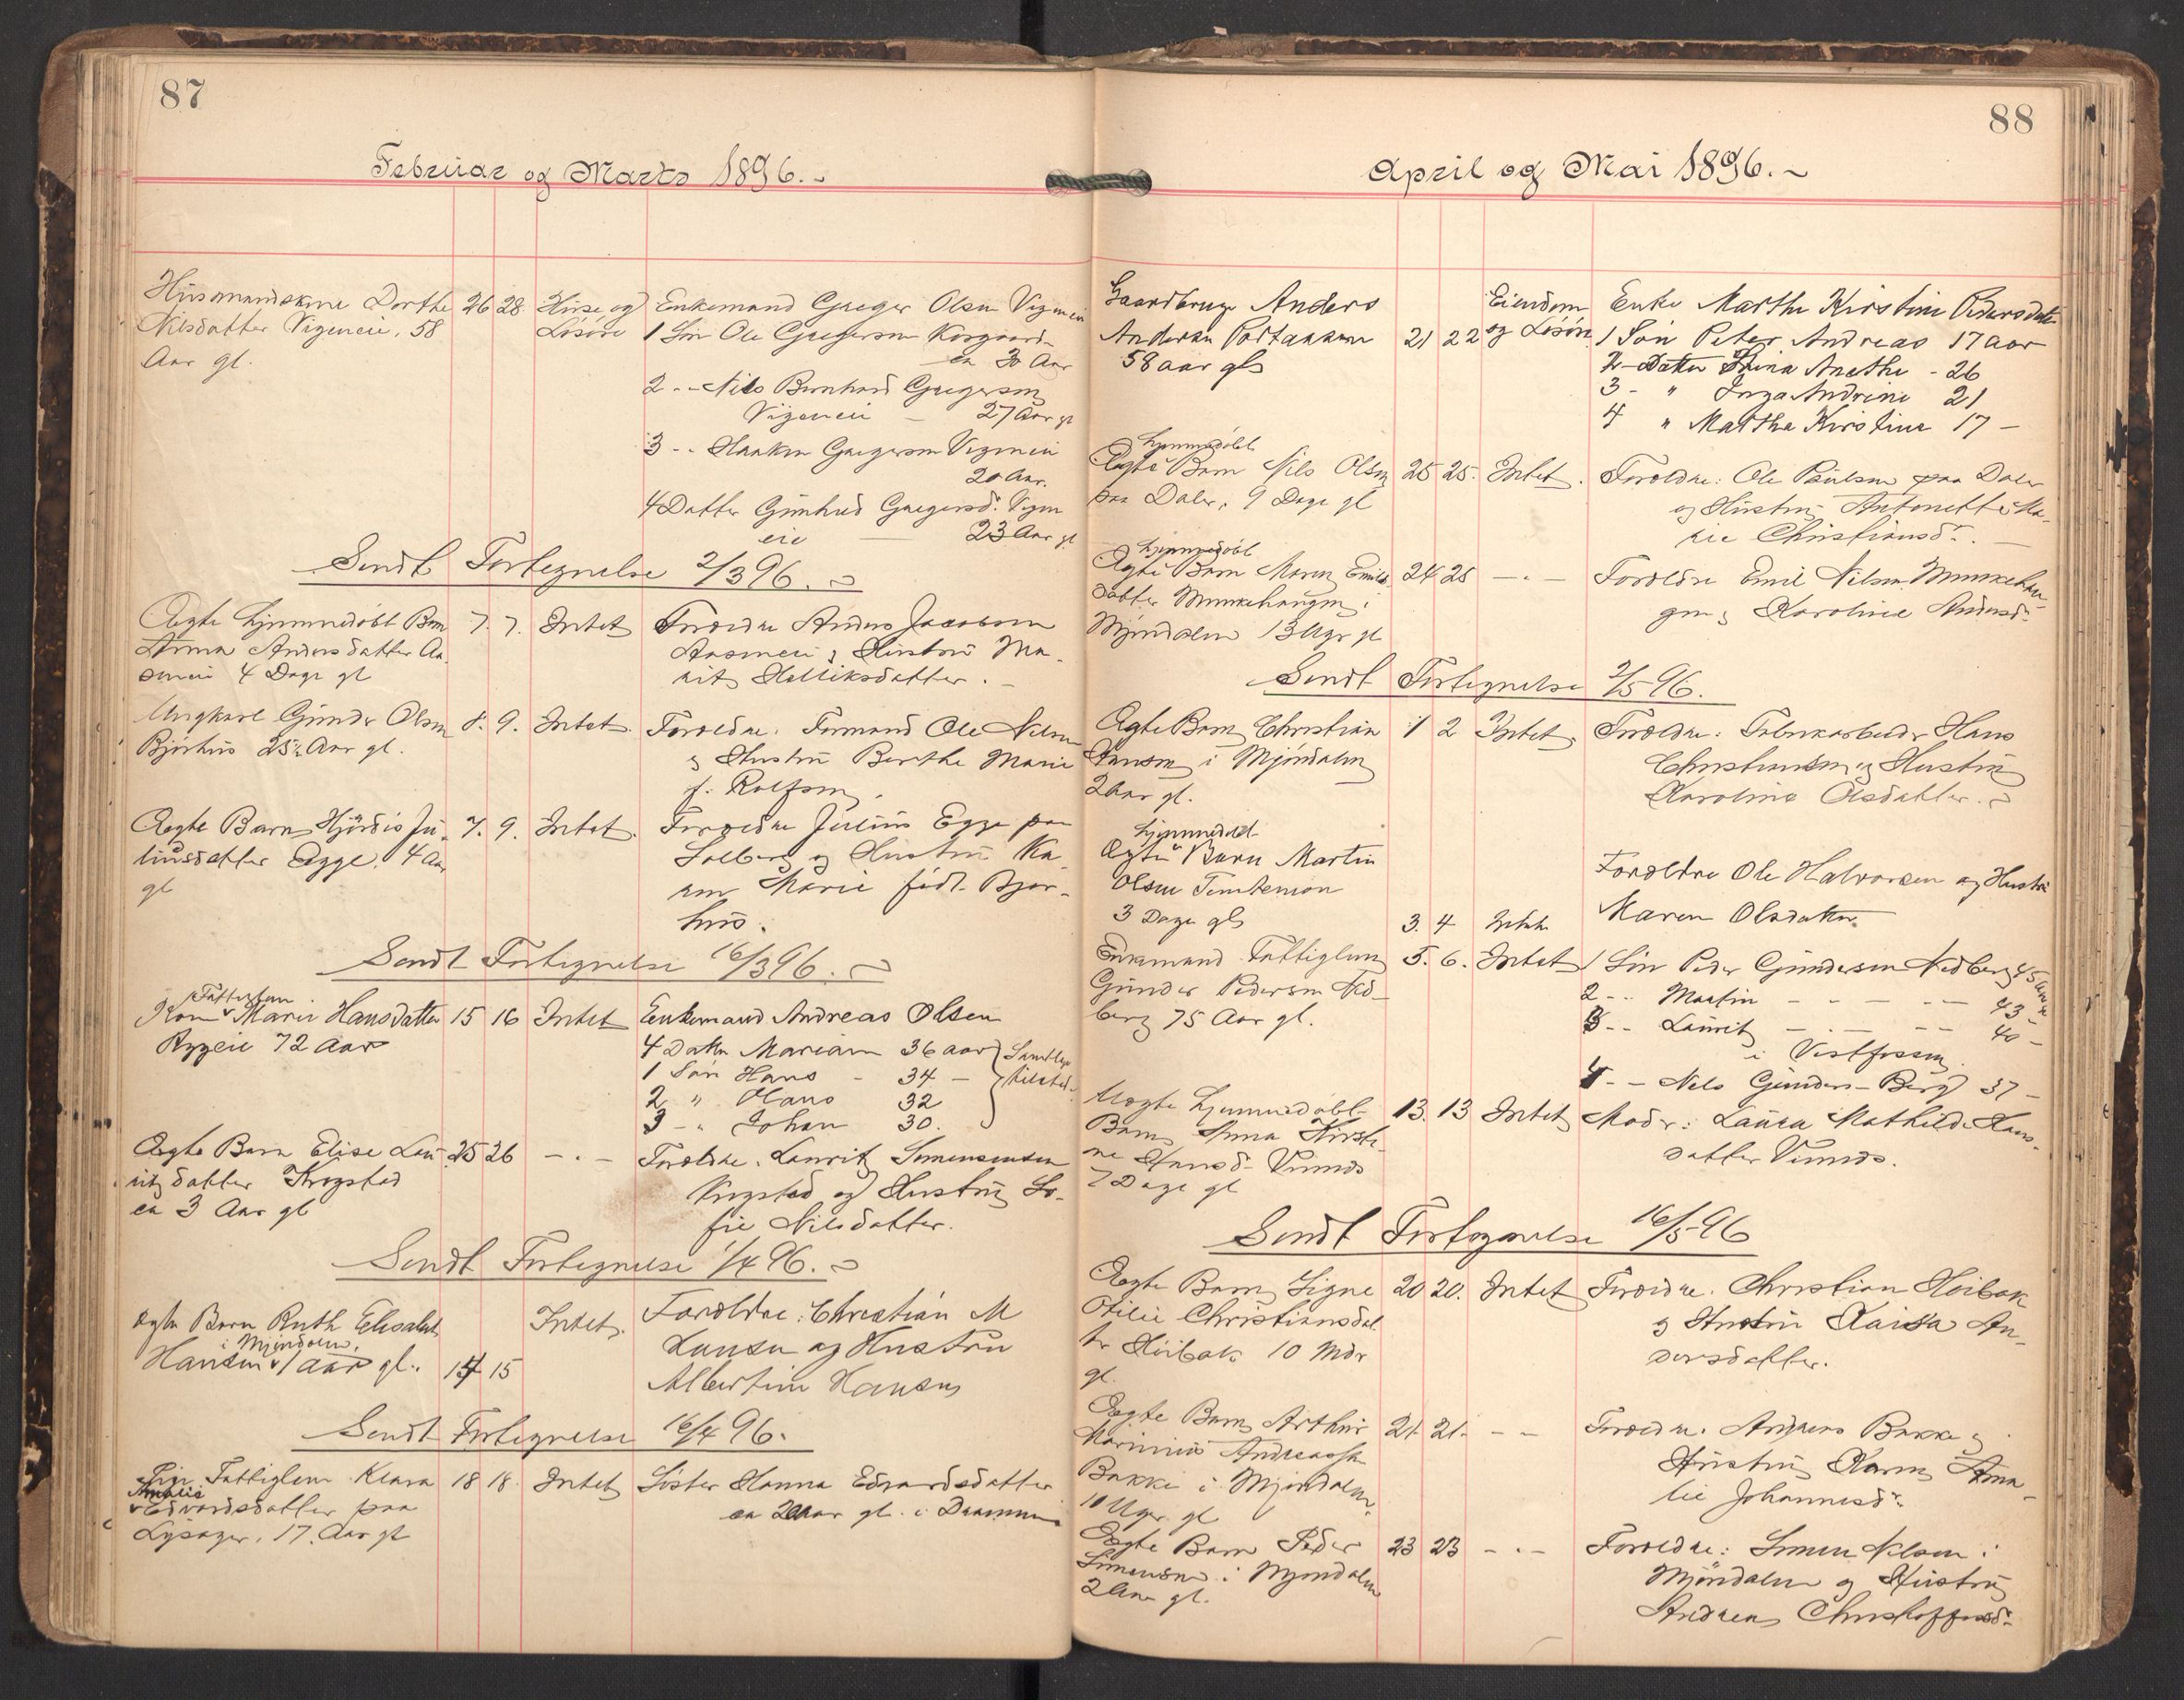 87
Februar og Marts 1896.
Husmandskone Dorthe 26 28 Huse og Enkemand Greger Olsen Vigeneie
Nilsdatter Vigeneie, 58 Løsøre 1 Søn Ole Gregersen Korsgaard
Aar gl. ca 30 Aar
2 -- Nils Bernhard Gregersen
Vigeneie — 27 Aar gl
3 -- Haaken Gregersen Vigeneie
20 Aar.
4 Datter Gunhild Gregersd. Vigen
eie — 23 Aar gl
Sendt Fortegnelse 2/3 96.
Ægte hjemmedøbt Barn 7. 7. Intet Forældre Anders Jacobsen
Anna Andersdatter Aa- Aasmeie og Hustru Ma-
smeie 4 Dage gl rit Helliksdatter.
Ungkarl Gunder Olsen 8. 9. Intet. Forældre: Formand Ole Nilsen
Bjørhus 25½ Aar gl. og Hustru Berthe Marie
f. Rolfsen.
Ægte Barn Hjørdis Ju- 7. 9. Intet. Forældre Julius Egge paa
liusdatter Egge. 4 Aar Solberg og Hustru Ka-
gl ren Marie født Bjør-
hus.
Sendt Fortegnelse 16/3 96.
Fattiglem
Kone Marie Hansdatter 15 16 Intet Enkemand Andreas Olsen
72 Aar 4 Datter Mariann 36 aar Samtlige
1 Søn Hans - 34 - tilsted
2 " Olaus 32
3 - " Johan 30.
Ægte Barn Elise Lau- 25 26 — . — Forældre. Laurits Simensen
ritzdatter Krogstad Krogstad og Hustru So-
ca 3 Aar gl fie Nilsdatter.
Sendt Fortegnelse 1/4 96.
Ægte Barn Ruth Elisabet Intet. Forældre: Christian M
i Mjøndalen,
Hansen 1 aar gl. 14 15 Hansen og Hustru
Albertine Hansen
Sendt Fortegnelse 16/4 96.
Pige Fattiglem Klara 18 18. Intet Søster Hanna Edvardsdatter
Amalie
Edvardsdatter paa ca 20 Aar gl. i Drammen
Lysager, 17. Aar gl
88
April og Mai 1896.
Gaardbruger Anders Eiendom Enke Marthe Kirstine Pedersdatter
Andersen 21 22 og Løsøre 1 Søn Peter Andreas 17 aar
58 aar gl 2 - Datter Trina Anethe - 26
3 - " Inga Andrine 21
4 " Marthe Kirstine 17 —
hjemmedøbt
Ægte Barn Nils Olsen 25 25. Intet. Forældre: Ole Paulsen paa Daler
paa Daler, 9 Dage gl og Hustru Antonette Ma-
rie Christiansd.
hjemmedøbt
Ægte Barn Maren Emils- 24 25 — . — Forældre Emil Nilsen Munkehau-
datter Munkehaugen i gen og Karoline Andersd.
Mjøndalen 13 Uger gl
Sendt Fortegnelse 2/5 96.
Ægte Barn Christian 1 2 Intet. Forældre: Fabrikarbeider Hans
Hansen i Mjøndalen Christiansen og Hustru
2 Aar gl. Karoline Olsdatter.
hjemmedøbt
Ægte Barn Martin
Olsen Forældre Ole Halvorsen og Hustru
3 Dage gl 3. 4 Intet Maren Olsdatter
Enkemand Fattiglem 5. 6. Intet 1 Søn Peder Gundersen Nedberg 45 Aar
Gunder Pedersen Ned- 2 - . Martin - - - - - 43 -
berg 75 Aar gl. 3 - - Laurits - . - - - 40 -
i Vestfossen
4 - - Nils Gunders- Berg 37 -
Uægte hjemmedøbt 13. 13 Intet Moder: Laura Mathilde Hans-
Barn Anna Kirsti- datter Vinnes.
ne Hansd. Vinnes
7 Dage gl
Sendt Fortegnelse 16/5 96
Ægte Barn Signe 20 20. Intet Forældre. Christian Høibak
Otilie Christiansdat- og Hustru Kaisa An-
ter Høibak 10 Mdr dersdatter.
gl.
Ægte Barn Arthur 21. 21. - - Forældre. Andreas Bakke og
Marinius Andreassen Hustru Karen Ama-
Bakke i Mjøndalen, lie Johannesd.
10 Uger gl
Ægte Barn Peder 23 23 - . - Forældre: Simen Nilsen i
Simensen i Mjøndalen Mjøndalen og Hustru
2 Aar gl. Andrea Christoffersd.